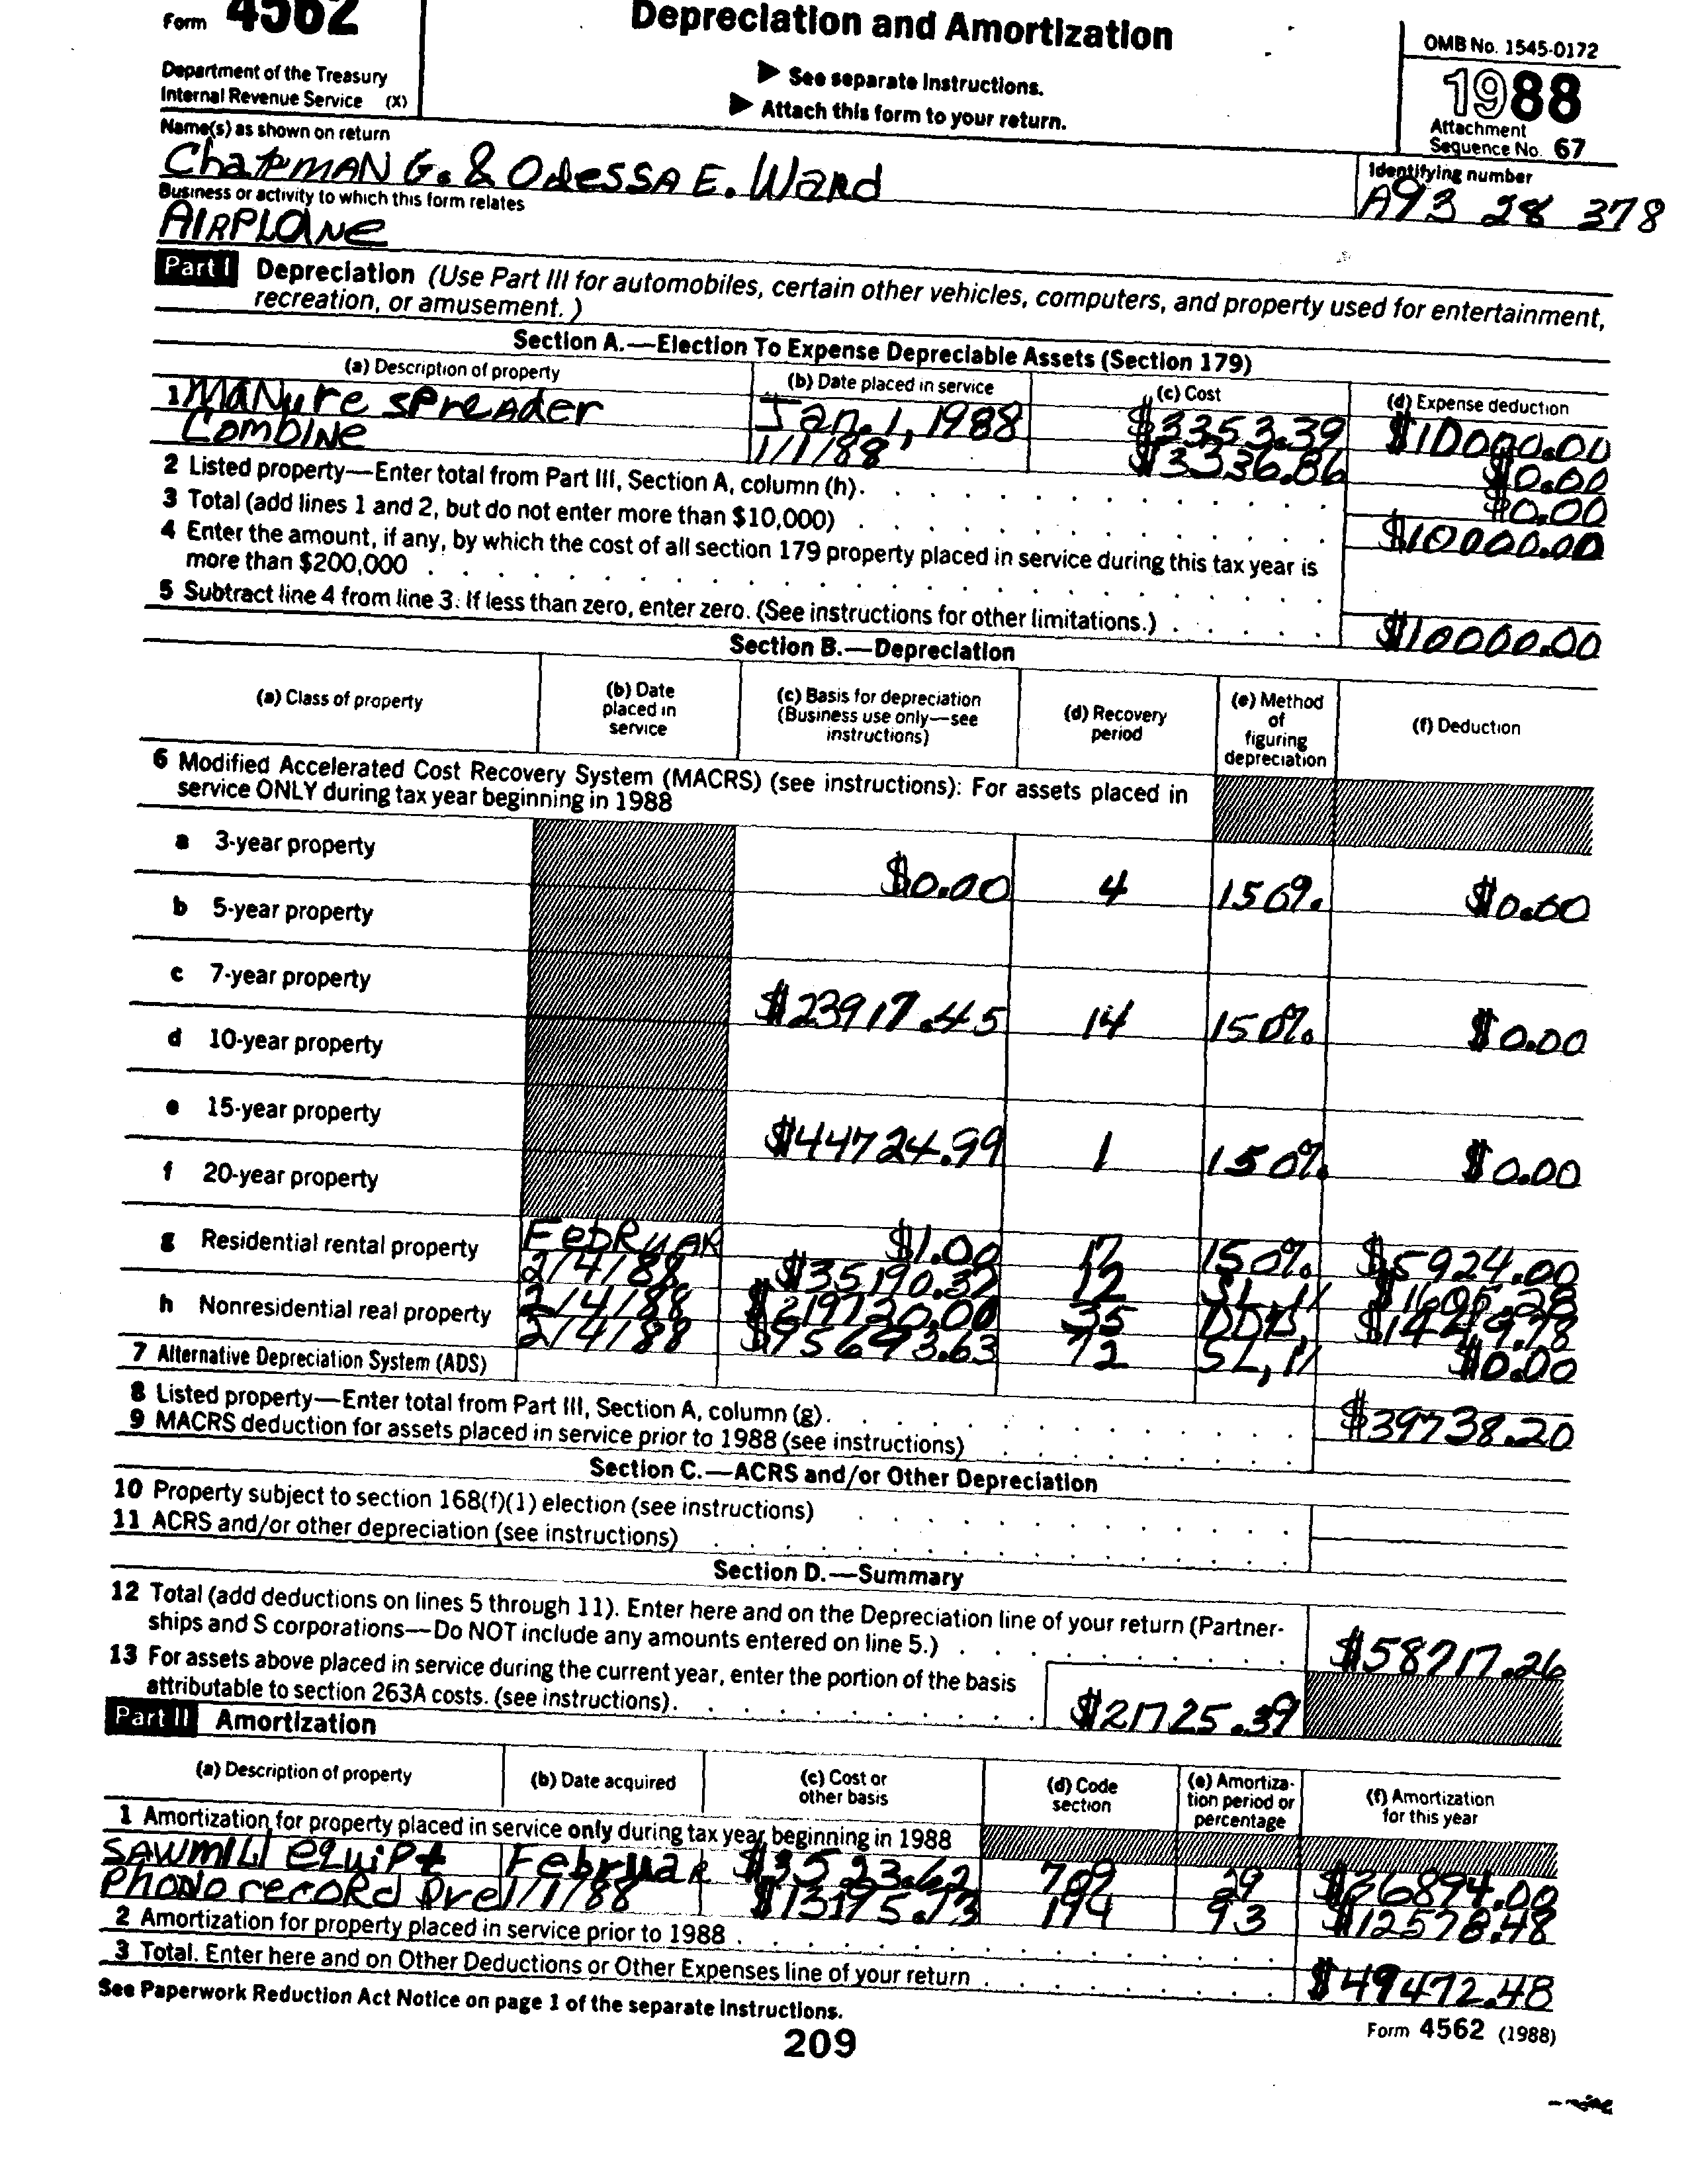 Form 4562
Depreciation and Amortization
OMB No. 1545-0172
Department of the Treasury
Internal Revenue Service (X)
▶ See separate Instructions.
▶ Attach this form to your return.
1988
Attachment
Sequence No. 67
Name(s) as shown on return
Chapman G. & Odessa E. Ward
Identifying number
A93 28 378
Business or activity to which this form relates
Airplane
Part I Depreciation (Use Part III for automobiles, certain other vehicles, computers, and property used for entertainment,
recreation, or amusement.)
Section A.—Election To Expense Depreciable Assets (Section 179)
(a) Description of property (b) Date placed in service (c) Cost (d) Expense deduction
1 Manure spreader Jan. 1, 1988 $3353.39 $10000.00
Combine 1/1/88 $3336.86 $0.00
2 Listed property—Enter total from Part III, Section A, column (h). $0.00
3 Total (add lines 1 and 2, but do not enter more than $10,000) $10000.00
4 Enter the amount, if any, by which the cost of all section 179 property placed in service during this tax year is
more than $200,000
5 Subtract line 4 from line 3. If less than zero, enter zero. (See instructions for other limitations.) $10000.00
Section B.—Depreciation
(a) Class of property (b) Date placed in service (c) Basis for depreciation (Business use only—see instructions) (d) Recovery period (e) Method of figuring depreciation (f) Deduction
6 Modified Accelerated Cost Recovery System (MACRS) (see instructions): For assets placed in
service ONLY during tax year beginning in 1988
a 3-year property $0.00 4 150% $0.00
b 5-year property
c 7-year property $23917.45 14 150% $0.00
d 10-year property
e 15-year property $44724.99 1 150% $0.00
f 20-year property
g Residential rental property Februar $1.00 17 150% $5924.00
2/4/88 $35190.37 12 SL, 1/ $1605.28
h Nonresidential real property 2/4/88 $219720.00 35 DDB, $1449.78
2/4/88 $95693.63 72 SL, 1/ $0.00
7 Alternative Depreciation System (ADS)
8 Listed property—Enter total from Part III, Section A, column (g). $39738.20
9 MACRS deduction for assets placed in service prior to 1988 (see instructions)
Section C.—ACRS and/or Other Depreciation
10 Property subject to section 168(f)(1) election (see instructions)
11 ACRS and/or other depreciation (see instructions)
Section D.—Summary
12 Total (add deductions on lines 5 through 11). Enter here and on the Depreciation line of your return (Partner-
ships and S corporations—Do NOT include any amounts entered on line 5.) $58717.26
13 For assets above placed in service during the current year, enter the portion of the basis
attributable to section 263A costs. (see instructions). $21725.39
Part II Amortization
(a) Description of property (b) Date acquired (c) Cost or other basis (d) Code section (e) Amortization period or percentage (f) Amortization for this year
1 Amortization for property placed in service only during tax year beginning in 1988
Sawmill equipt Februar $3523.62 709 29 $36894.00
Phono record pre 1/1/88 $13195.73 194 93 $12578.48
2 Amortization for property placed in service prior to 1988
3 Total. Enter here and on Other Deductions or Other Expenses line of your return $49472.48
See Paperwork Reduction Act Notice on page 1 of the separate Instructions.
Form 4562 (1988)
209